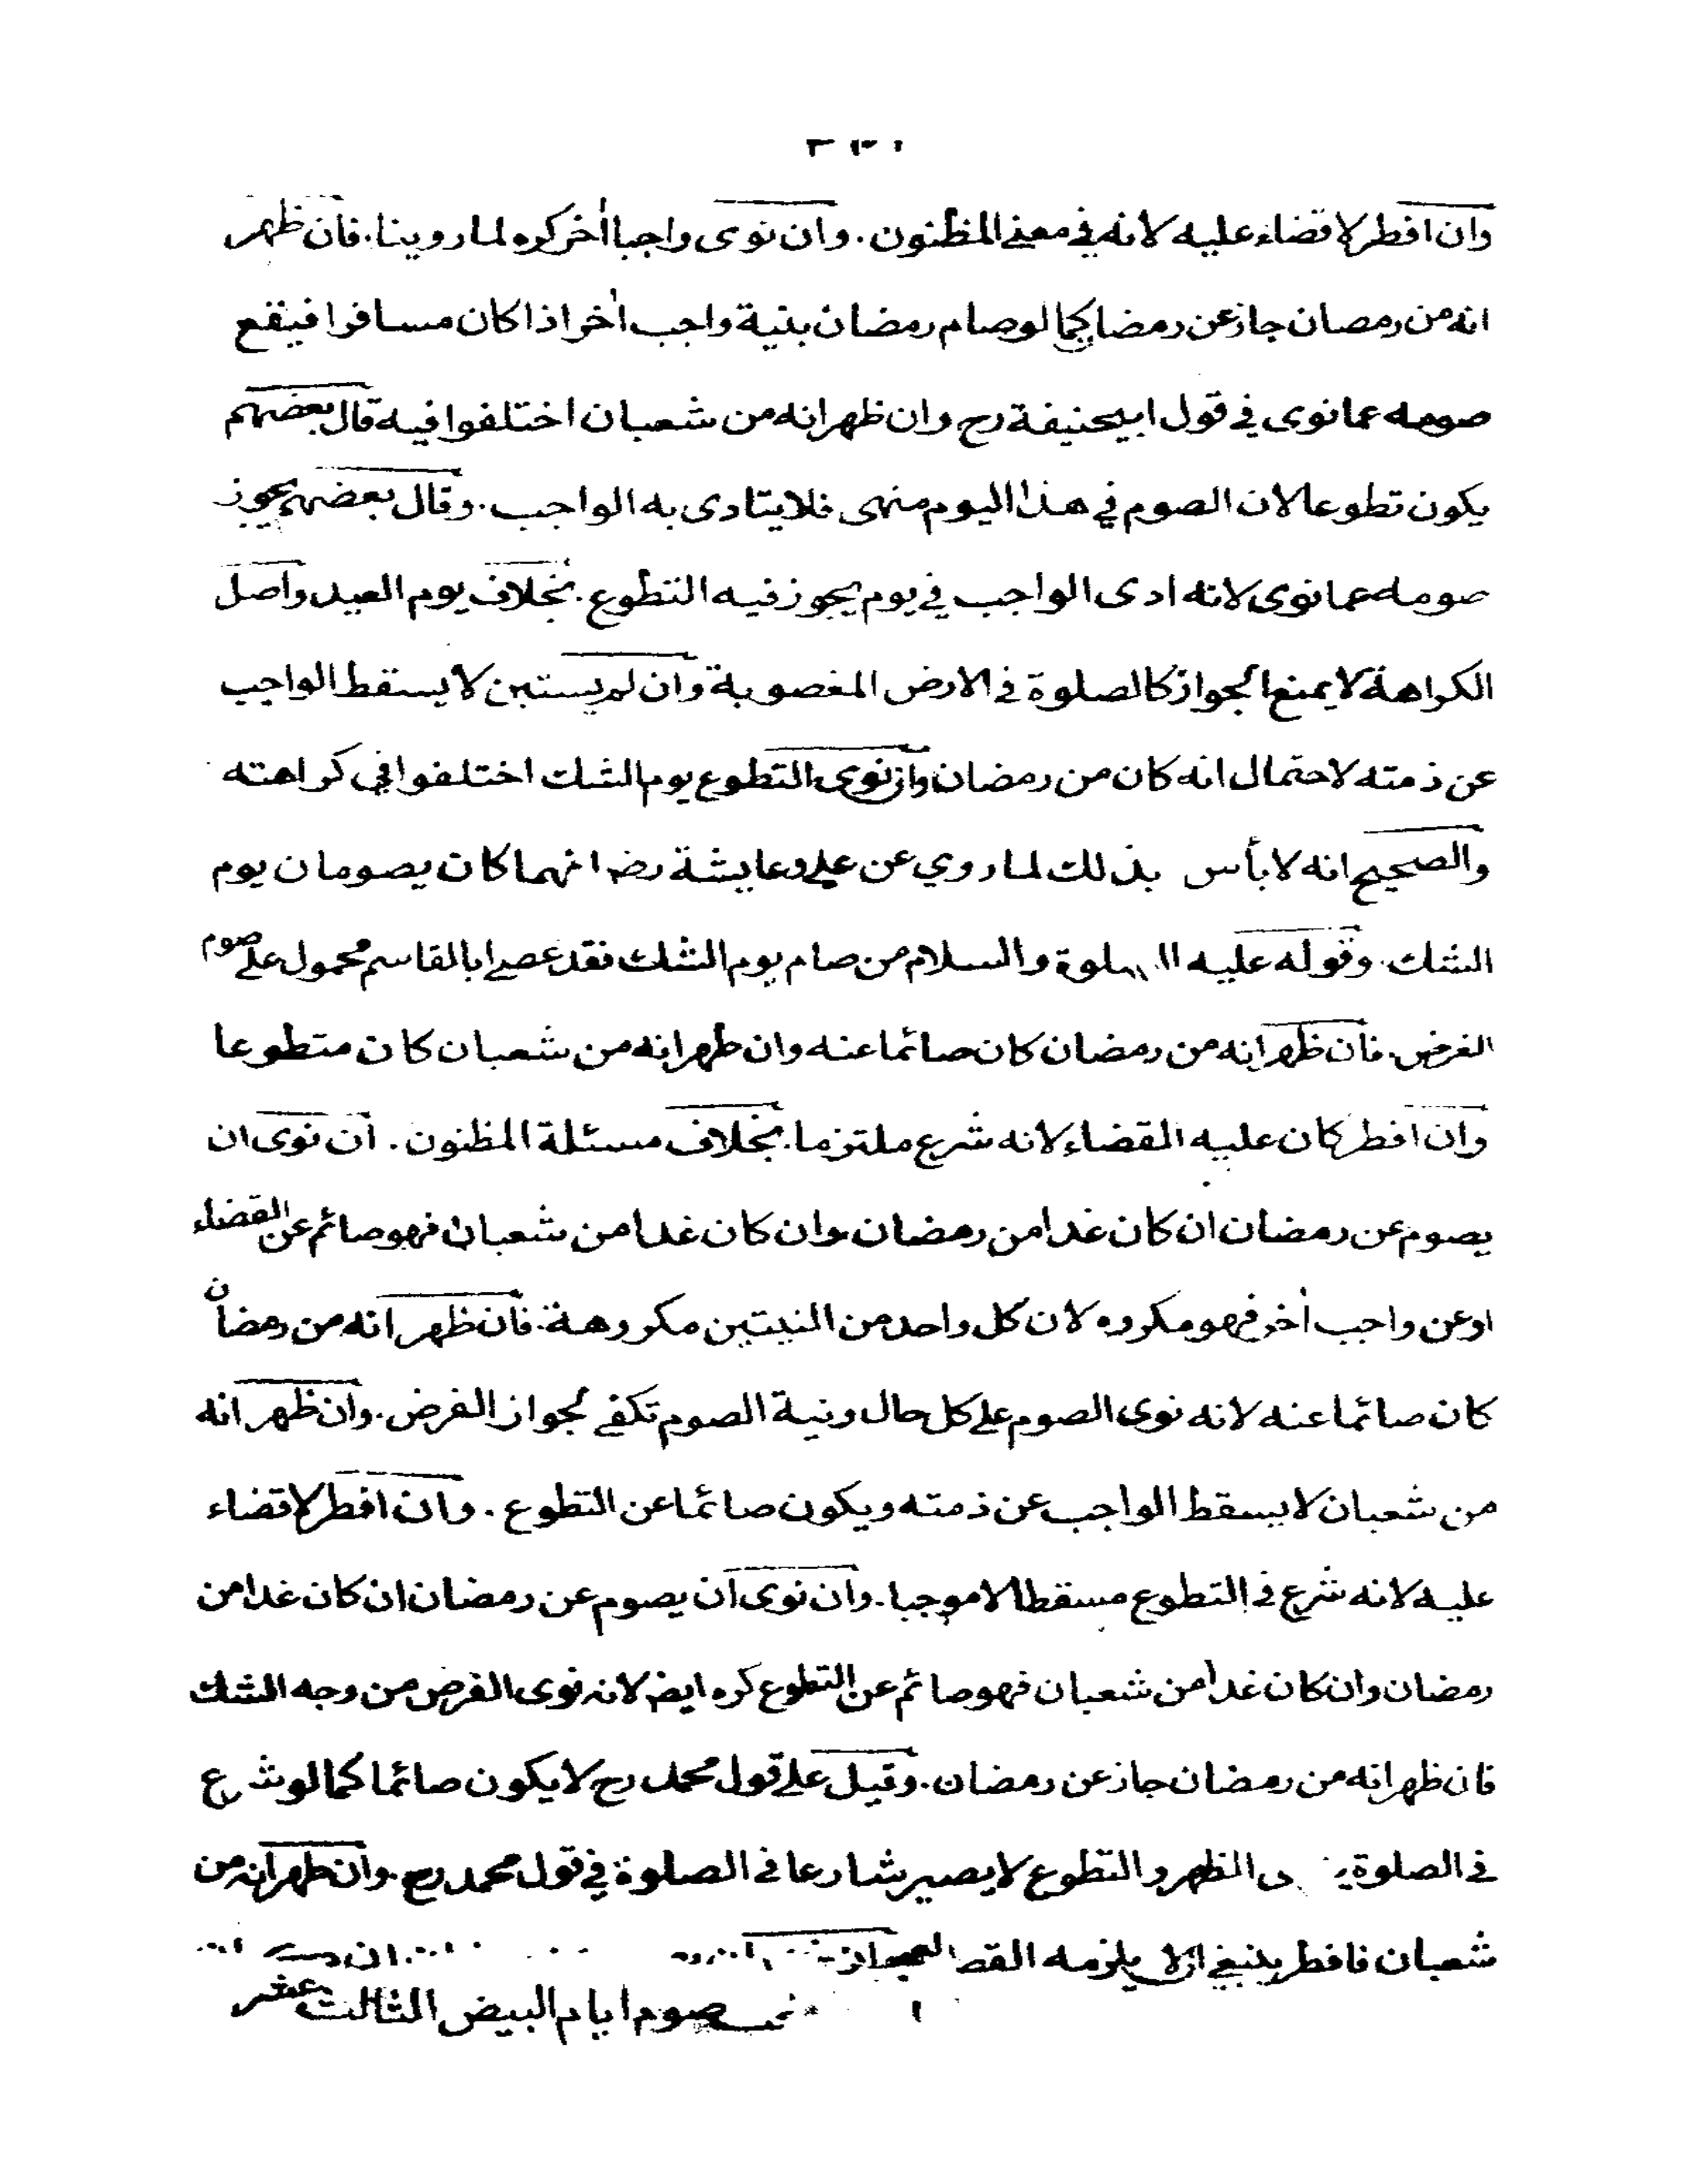 وان افطر لا قضاء عليه لانه في معنى المظنون . وان نوى واجبا أخر كره لما روينا . فان ظهر
انه من رمصان جاز عن رمضان كما لو صام رمضان بنية واجب أخر اذا كان مسافرا فيقع
صومه عما نوى في قول ابيحنيفة رح وان ظهر انه من شعبان اختلفوا فيه قال بعضهم
يكون تطوعا لان الصوم في هذا اليوم منهى فلا يتادى به الواجب . وقال بعضهم يجوز
صومه عما نوى لانه ادى الواجب في يوم يجوز فيه التطوع . بخلاف يوم العيد واصل
الكراهة لا يمنع الجواز كالصلوة في الارض المغصوبة وان لم يستبن لا يسقط الواجب
عن ذمته لاحتمال انه كان من رمضان وان نوى التطوع يوم الشك اختلفوا في كراهته
والصحيح انه لا بأس بذلك لما روي عن علي وعايشة رضـ انهما كان يصومان يوم
الشك . وقوله عليه الصلوة والسلام من صام يوم الشك فقد عصى ابا القاسم محمول على صوم
الفرض . فان ظهر انه من رمضان كان صائما عنه وان ظهر انه من شعبان كان متطوعا
وان افطر كان عليه القضاء لانه شرع ملتزما . بخلاف مسئلة المظنون . ان نوى ان
يصوم عن رمضان ان كان غدا من رمضان وان كان غدا من شعبان فهو صائم عن القضاء
اوعن واجب أخر فهو مكروه لان كل واحد من النيتين مكروهة . فان ظهر انه من رمضان
كان صائما عنه لانه نوى الصوم على كل حال ونية الصوم تكفي لجواز الفرض . وان ظهر انه
من شعبان لا يسقط الواجب عن ذمته ويكون صائما عن التطوع . وان افطر لا قضاء
عليه لانه شرع في التطوع مسقطا لا موجبا . وان نوى ان يصوم عن رمضان ان كان غدا من
رمضان وان كان غدا من شعبان فهو صائم عن التطوع كره ايضـ لانه نوى الفرض من وجه الشك
فان ظهر انه من رمضان جاز عن رمضان . وقيل على قول محمد رح لا يكون صائما كما لو شرع
في الصلوة الظهر والتطوع لا يصير شارعا في الصلوة في قول محمد رح . وان ظهر انه من
شعبان فافطر ينبغي ان لا يلزمه
صوم ايام البيض الثالث عشر